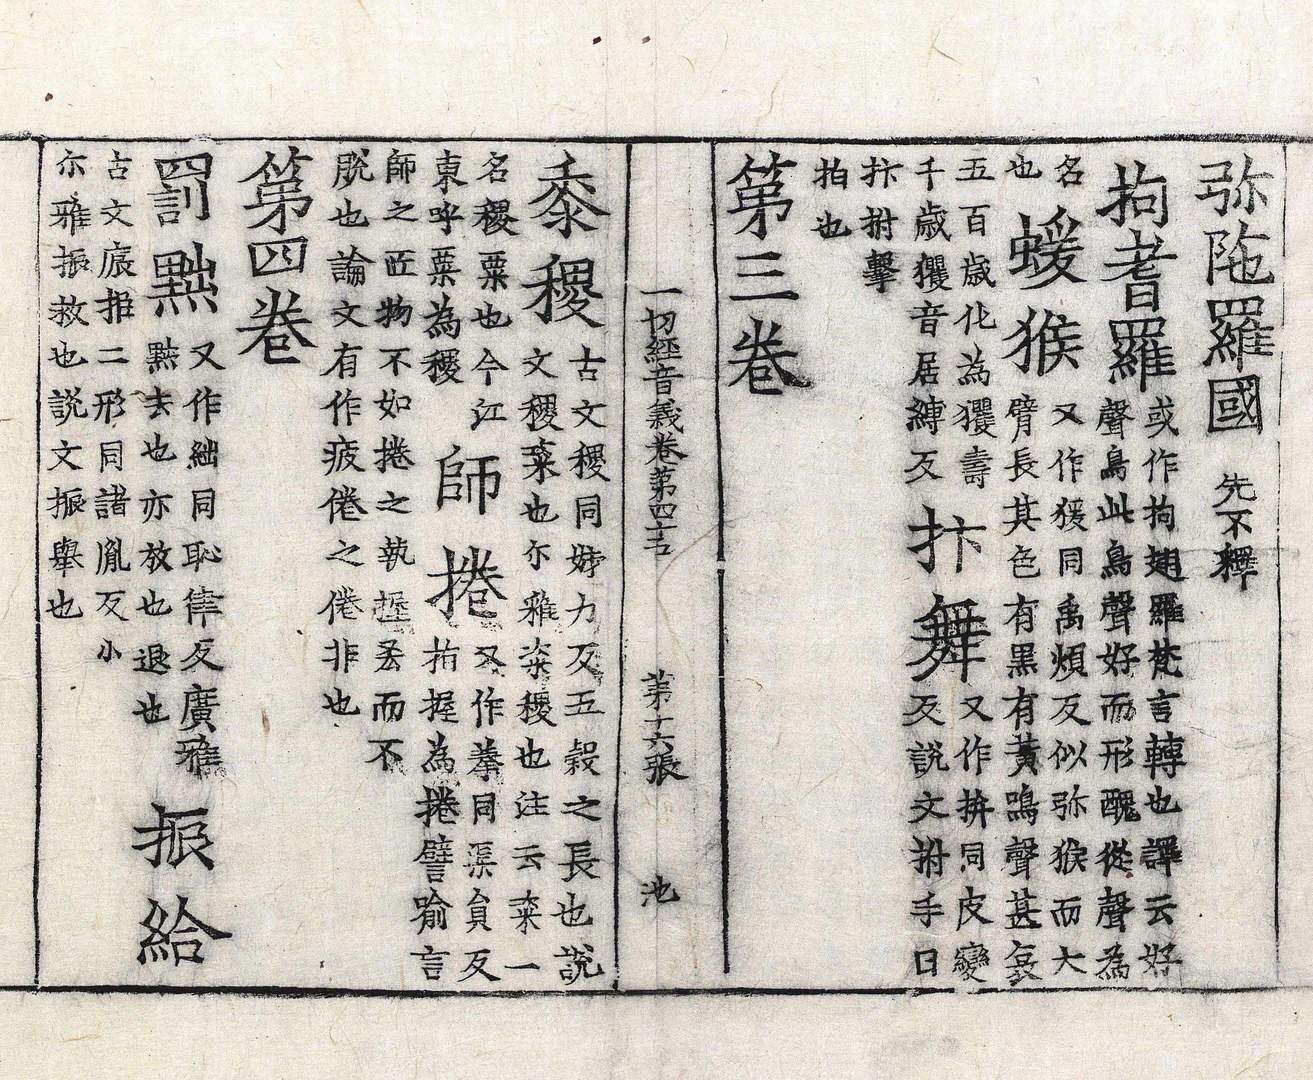 弥陁羅國 先不釋
拘耆羅 或作拘翅羅梵言轉也譯云好
聲鳥此鳥聲好而形醜從聲為
名
也 蝯猴 又作猨同禹煩反似弥猴而大
臂長其色有黒有黃鳴聲甚哀
五百歲化為玃壽
千歲玃音居縛反 抃舞 又作拚同皮變
反說文拊手曰
抃拊擊
拍也
第三卷
一切經音義卷第四十六 第十六張 池
黍稷 古文稷同姊力反五穀之長也說
文稷粢也尒雅粢稷也注云粢一
名稷粟也今江
東呼粟為稷 師捲 又作拳同渠負反
指握為捲譬喻言
師之匠物不如捲之執握丟而不
脫也論文有作疲倦之倦非也
第四卷
罰黜 又作絀同恥律反廣雅
黜去也亦放也退也 振給
古文㕋拒二形同諸胤反小
尒雅振救也說文振舉也